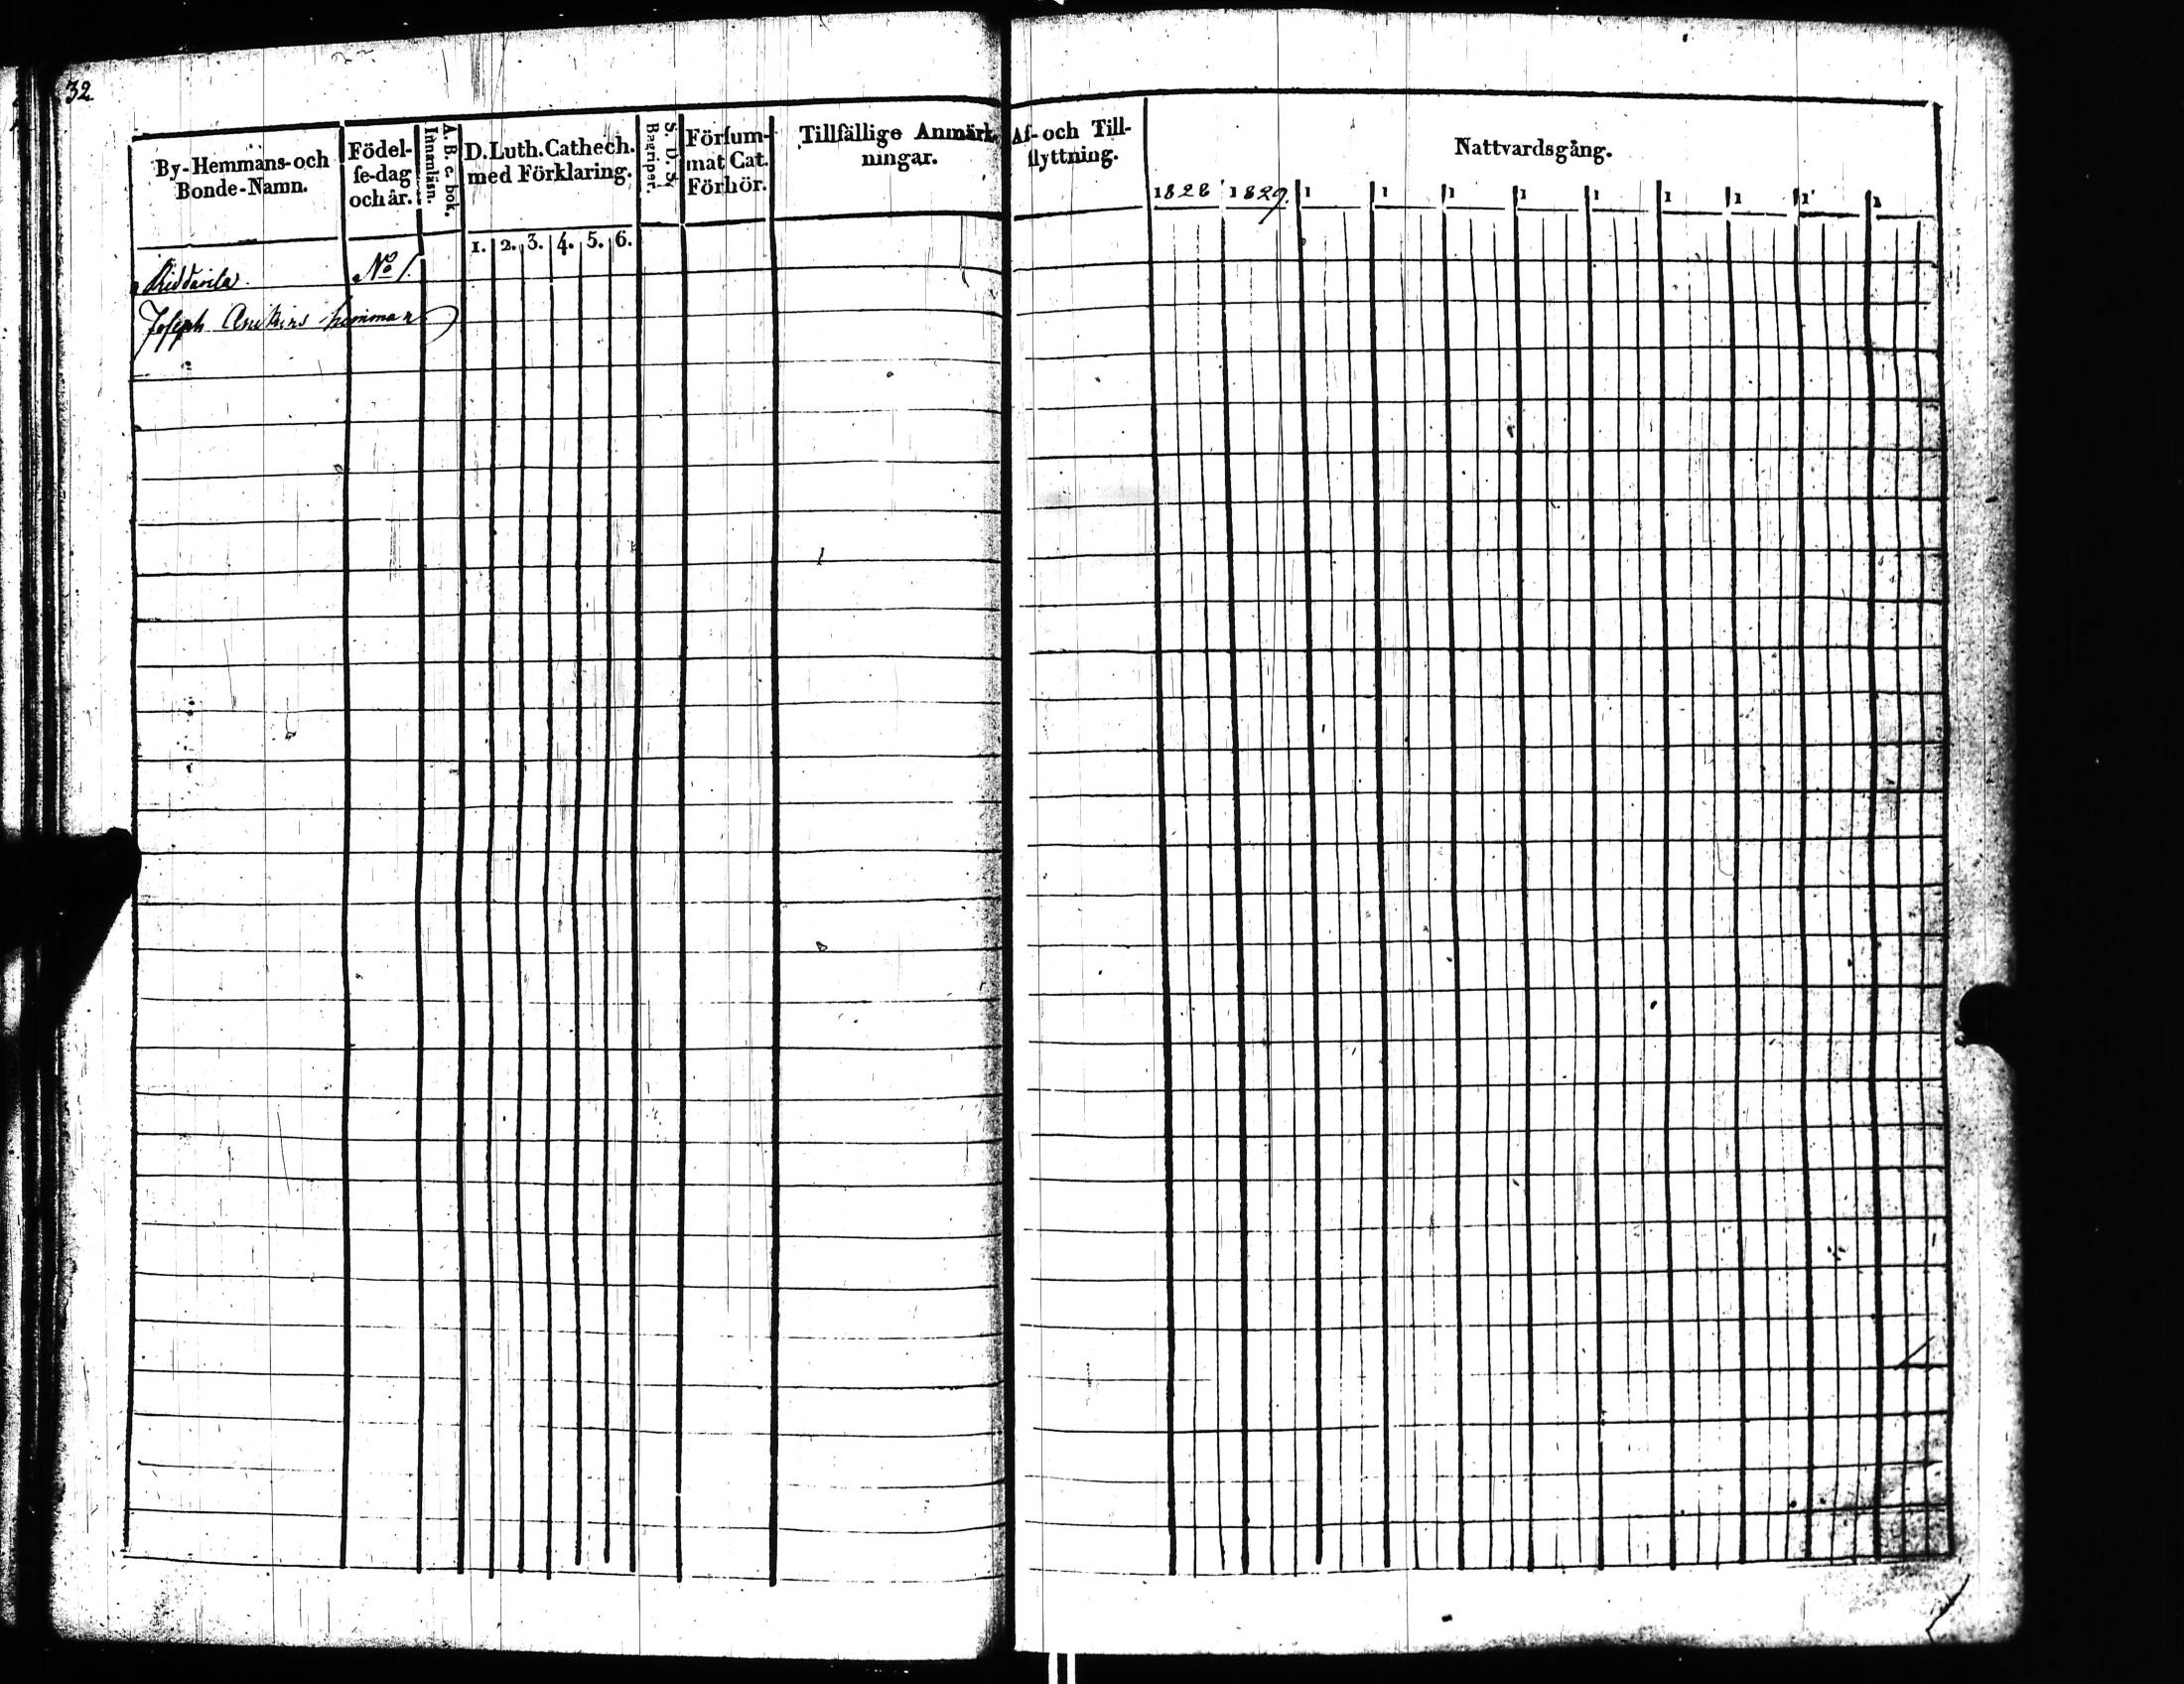 32
By-Hemmans-och Bonde-Namn.
Födel-ſe-dag och år.
A. B. c. bok. Innanläsn.
D. Luth. Cathech. med Förklaring.
1. 2. 3. 4. 5. 6.
S. D. S. Begriper.
Förſum-mat Cat. Förhör.
Tillfällige Anmärk-ningar.
Af- och Till-flyttning.
Nattvardsgång.
1828 1829. 1 1 1 1 1 1 1 1 1
No 1.
Joseph hemman